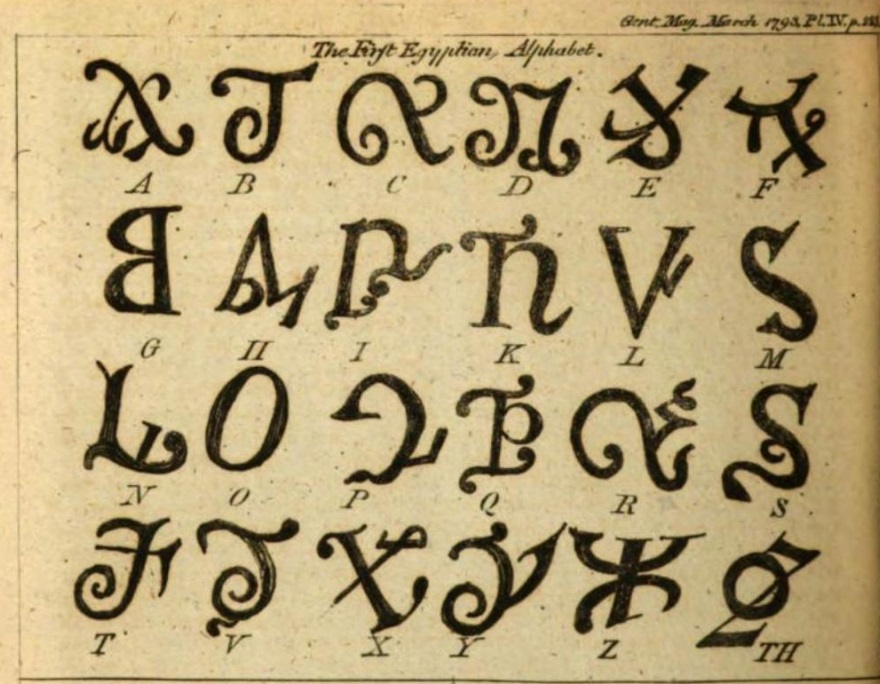 Gent. Mag. March 1793. Pl. IV. p.
The First Egyptian Alphabet.
A B C D E F
G H I K L M
N O P Q R S
T V X Y Z TH